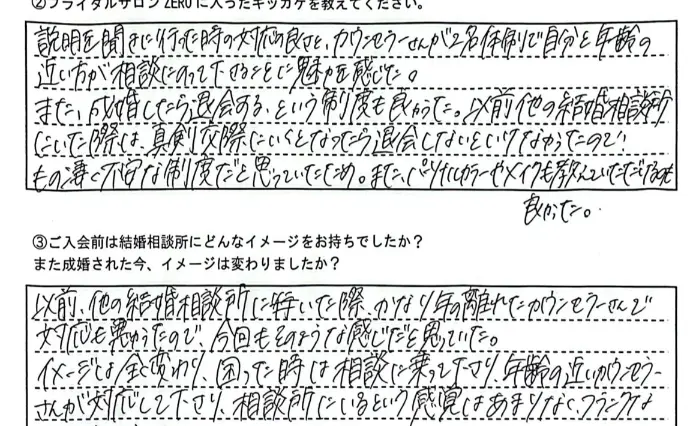 ②ブライダルサロンZEROに入ったキッカケを教えてください。
説明を聞きに行った時の対応の良さと、カウンセラーさんが2名体制で自分と年齢の
近い方が相談にのって下さることに魅力を感じた。
また、成婚したら退会する、という制度も良かった。以前他の結婚相談所
にいた際は、真剣交際にいくとなったら退会しないといけなかったので、
もの凄く不安な制度だと思っていたため。また、パーソナルカラーやメイクも教えていただけるのも
良かった。
③ご入会前は結婚相談所にどんなイメージをお持ちでしたか？
また成婚された今、イメージは変わりましたか？
以前、他の結婚相談所に在籍いた際、かなり年の離れたカウンセラーさんで
対応も悪かったので、今回もそのような感じだと思っていた。
イメージは全く変わり、困った時は相談に乗って下さり、年齢の近いカウンセラー
さんが対応して下さり、相談所にいるという感覚はあまりなく、フランクな